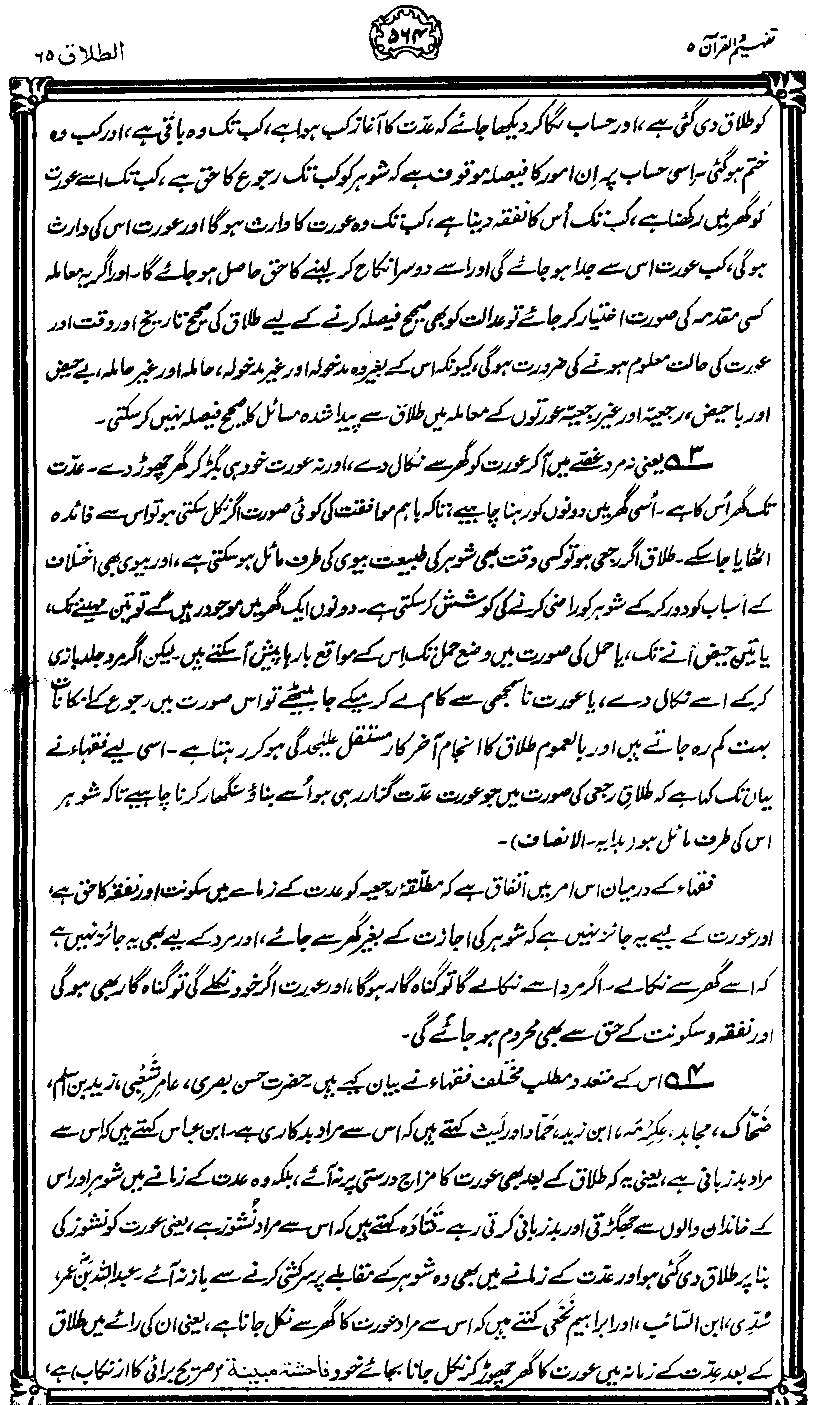 تفہیم القرآن ۵
۵۶۴
الطلاق ۶۵
کو طلاق دی گئی ہے، اور حساب لگا کر دیکھا جائے کہ عدّت کا آغاز کب ہوا ہے، کب تک وہ باقی ہے، اور کب وہ
ختم ہو گئی۔ اسی حساب پر اِن امور کا فیصلہ موقوف ہے کہ شوہر کو کب تک رجوع کا حق ہے، کب تک اسے عورت
کو گھر میں رکھنا ہے، کب تک اُس کا نفقہ دینا ہے، کب تک وہ عورت کا وارث ہوگا اور عورت اس کی وارث
ہوگی، کب عورت اس سے جدا ہو جائے گی اور اسے دوسرا نکاح کر لینے کا حق حاصل ہو جائے گا۔ اور اگر یہ معاملہ
کسی مقدمہ کی صورت اختیار کر جائے تو عدالت کو بھی صحیح فیصلہ کرنے کے لیے طلاق کی صحیح تاریخ اور وقت اور
عورت کی حالت معلوم ہونے کی ضرورت ہوگی، کیونکہ اس کے بغیر وہ مدخولہ اور غیر مدخولہ، حاملہ اور غیر حاملہ، بے حیض
اور باحیض، رجعیہ اور غیر رجعیہ عورتوں کے معاملہ میں طلاق سے پیدا شدہ مسائل کا صحیح فیصلہ نہیں کر سکتی۔
۳ یعنی نہ مرد غصّے میں آ کر عورت کو گھر سے نکال دے، اور نہ عورت خود ہی بگڑ کر گھر چھوڑ دے۔ عدّت
تک گھر اُس کا ہے۔ اُسی گھر میں دونوں کو رہنا چاہیے، تاکہ باہم موافقت کی کوئی صورت اگر نکل سکتی ہو تو اس سے فائدہ
اٹھایا جا سکے۔ طلاق اگر رجعی ہو تو کسی وقت بھی شوہر کی طبیعت بیوی کی طرف مائل ہو سکتی ہے، اور بیوی بھی اختلاف
کے اسباب کو دور کر کے شوہر کو راضی کرنے کی کوشش کر سکتی ہے۔ دونوں ایک گھر میں موجود رہیں گے تو تین مہینے تک،
یا تین حیض آنے تک، یا حمل کی صورت میں وضع حمل تک اِس کے مواقع بارہا پیش آ سکتے ہیں۔ لیکن اگر مرد جلد بازی
کر کے اسے نکال دے، یا عورت ناسمجھی سے کام لے کر میکے جا بیٹھے تو اس صورت میں رجوع کے امکانات
بہت کم رہ جاتے ہیں اور بالعموم طلاق کا انجام آخر کار مستقل علیٰحدگی ہو کر رہتا ہے۔ اسی لیے فقہاء نے
یہاں تک کہا ہے کہ طلاقِ رجعی کی صورت میں جو عورت عدّت گزار رہی ہو اُسے بناؤ سنگھار کرنا چاہیے تاکہ شوہر
اس کی طرف مائل ہو (ہدایہ۔ الانصاف)۔
فقہاء کے درمیان اس امر میں اتفاق ہے کہ مطلّقۂ رجعیہ کو عدت کے زمانے میں سکونت اور نفقہ کا حق ہے،
اور عورت کے لیے یہ جائز نہیں ہے کہ شوہر کی اجازت کے بغیر گھر سے جائے، اور مرد کے لیے بھی یہ جائز نہیں ہے
کہ اسے گھر سے نکالے۔ اگر مرد اسے نکالے گا تو گناہ گار ہوگا، اور عورت اگر خود نکلے گی تو گناہ گار بھی ہوگی
اور نفقہ و سکونت کے حق سے بھی محروم ہو جائے گی۔
۴ اس کے متعدد مطلب مختلف فقہاء نے بیان کیے ہیں۔ حضرت حسن بصری، عامر شَعْبی، زید بن اسلم،
ضحّاک، مجاہد، عِکْرِمَہ، ابن زید، حمّاد اور لَیث کہتے ہیں کہ اس سے مراد بدکاری ہے۔ ابن عباس کہتے ہیں کہ اس سے
مراد بدزبانی ہے، یعنی یہ کہ طلاق کے بعد بھی عورت کا مزاج درستی پر نہ آئے، بلکہ وہ عدت کے زمانے میں شوہر اور اس
کے خاندان والوں سے جھگڑتی اور بدزبانی کرتی رہے۔ قَتَادَہ کہتے ہیں کہ اس سے مراد نُشُوز ہے، یعنی عورت کو نشوز کی
بنا پر طلاق دی گئی ہو اور عدّت کے زمانے میں بھی وہ شوہر کے مقابلے پر سرکشی کرنے سے باز نہ آئے۔ عبداللہ بن عمر،
سُدِّی، ابن السائب، اور ابراہیم نَخَعی کہتے ہیں کہ اس سے مراد عورت کا گھر سے نکل جانا ہے، یعنی ان کی رائے میں طلاق
کے بعد عدّت کے زمانہ میں عورت کا گھر چھوڑ کر نکل جانا بجائے خود فاحشة مبینة (صریح برائی کا ارتکاب) ہے،